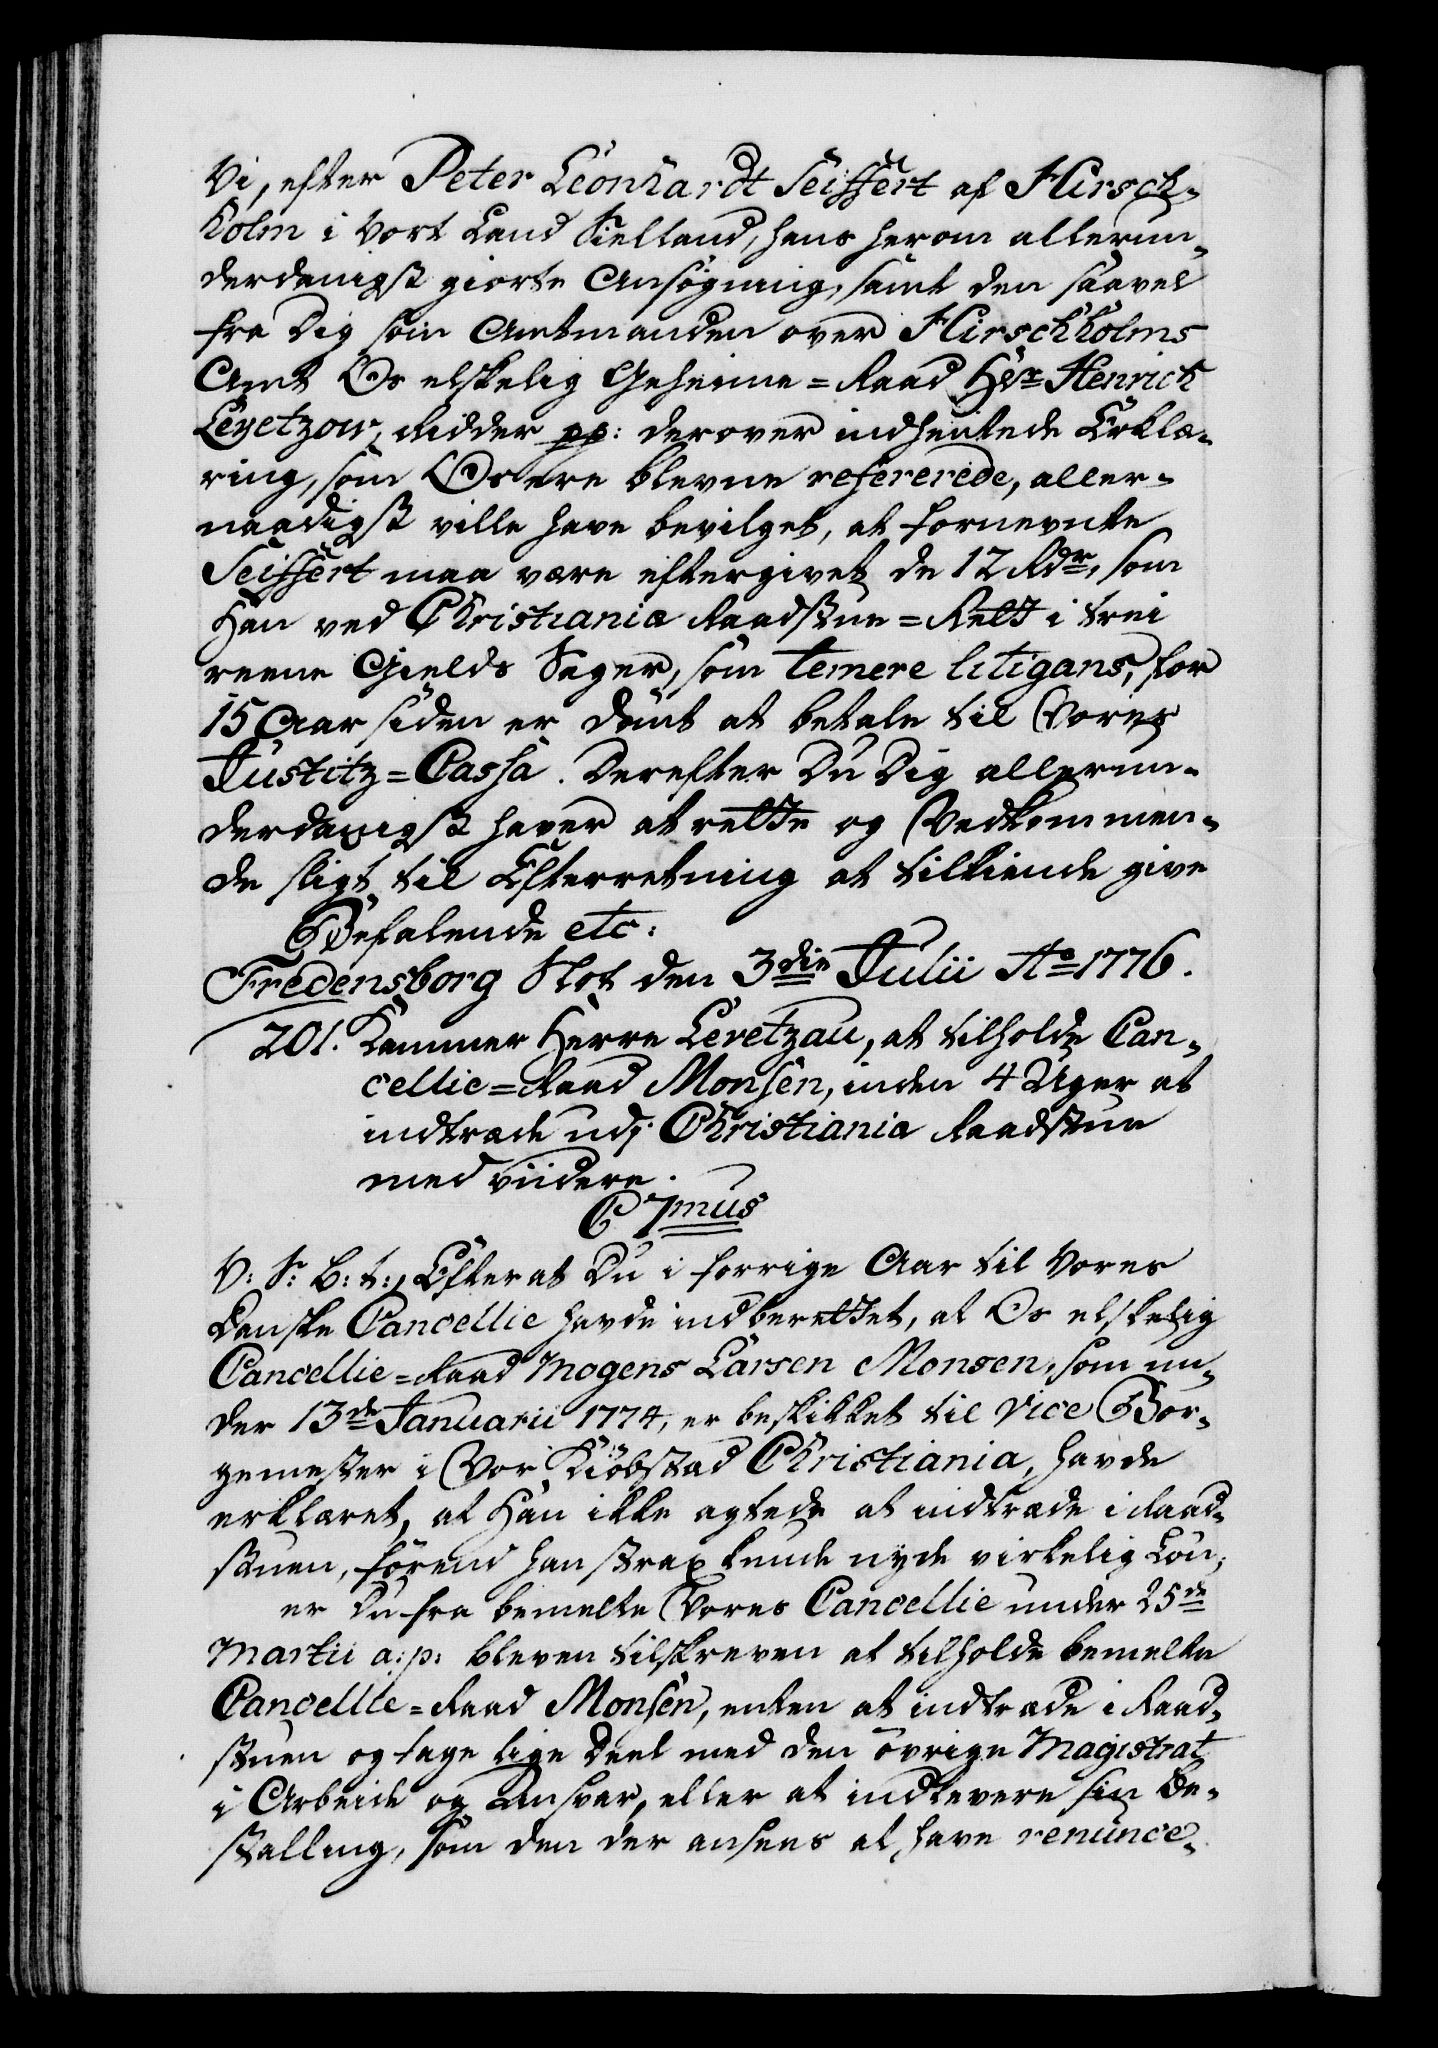 Vi, efter Peter Leonhardt Seiffert af Hirsch-
holm i Vort Land Sielland, hans herom allerun-
derdanigst giorte Ansøgning, samt den saavel
fra Dig som Amtmanden over Hirschholms
Amt Os elskelig Geheime=Raad Hr: Henrich
Levetzow, Ridder pp: derover indhentede Erklæ-
ring, som Os ere blevne refererede, aller-
naadigst ville have bevilget, at fornevnte
Seiffert maa være eftergivet de 12 Rdr, som
Han ved Christiania Raadstue=Rett i trei
reene Gields Sager, som temere litigans, for
15 Aar siden er dömt at betale til Vores
Justitz=Cassa. Derefter Du Dig allerun-
derdanigst haver at rette og Vedkommen-
de sligt til Efterretning at tilkiende give
Befalende etc:
Fredensborg Slot den 3die Julii Ao 1776.
201. Kammer Herre Levetzau, at tilholde Can-
cellie=Raad Monsen, inden 4 Uger at
indtræde udj Christiania Raadstue
med viidere.
C 7mus
V: S: B: t:, Efterat Du i forrige Aar til Vores
Danske Cancellie havde indberettet, at Os elskelig
Cancellie=Raad Mogens Larsen Monsen, som un-
der 13de Januarii 1774, er beskikket til Vice Bor-
gemester i Vor Kiöbstad Christiania, havde
erklæret, at Han ikke agtede at indtræde i Raad-
stuen, förend han strax kunde nyde virkelig Lön;
er Du fra bemelte Vores Cancellie under 25de
Martii a: p: bleven tilskreven at tilholde bemelte
Cancellie=Raad Monsen, enten at indtræde i Raad-
stuen og tage lige Deel med den övrige Magistrat
i Arbeide og Ansvar, eller at indlevere sin Be-
stalling, som den der ansees at have renunce-